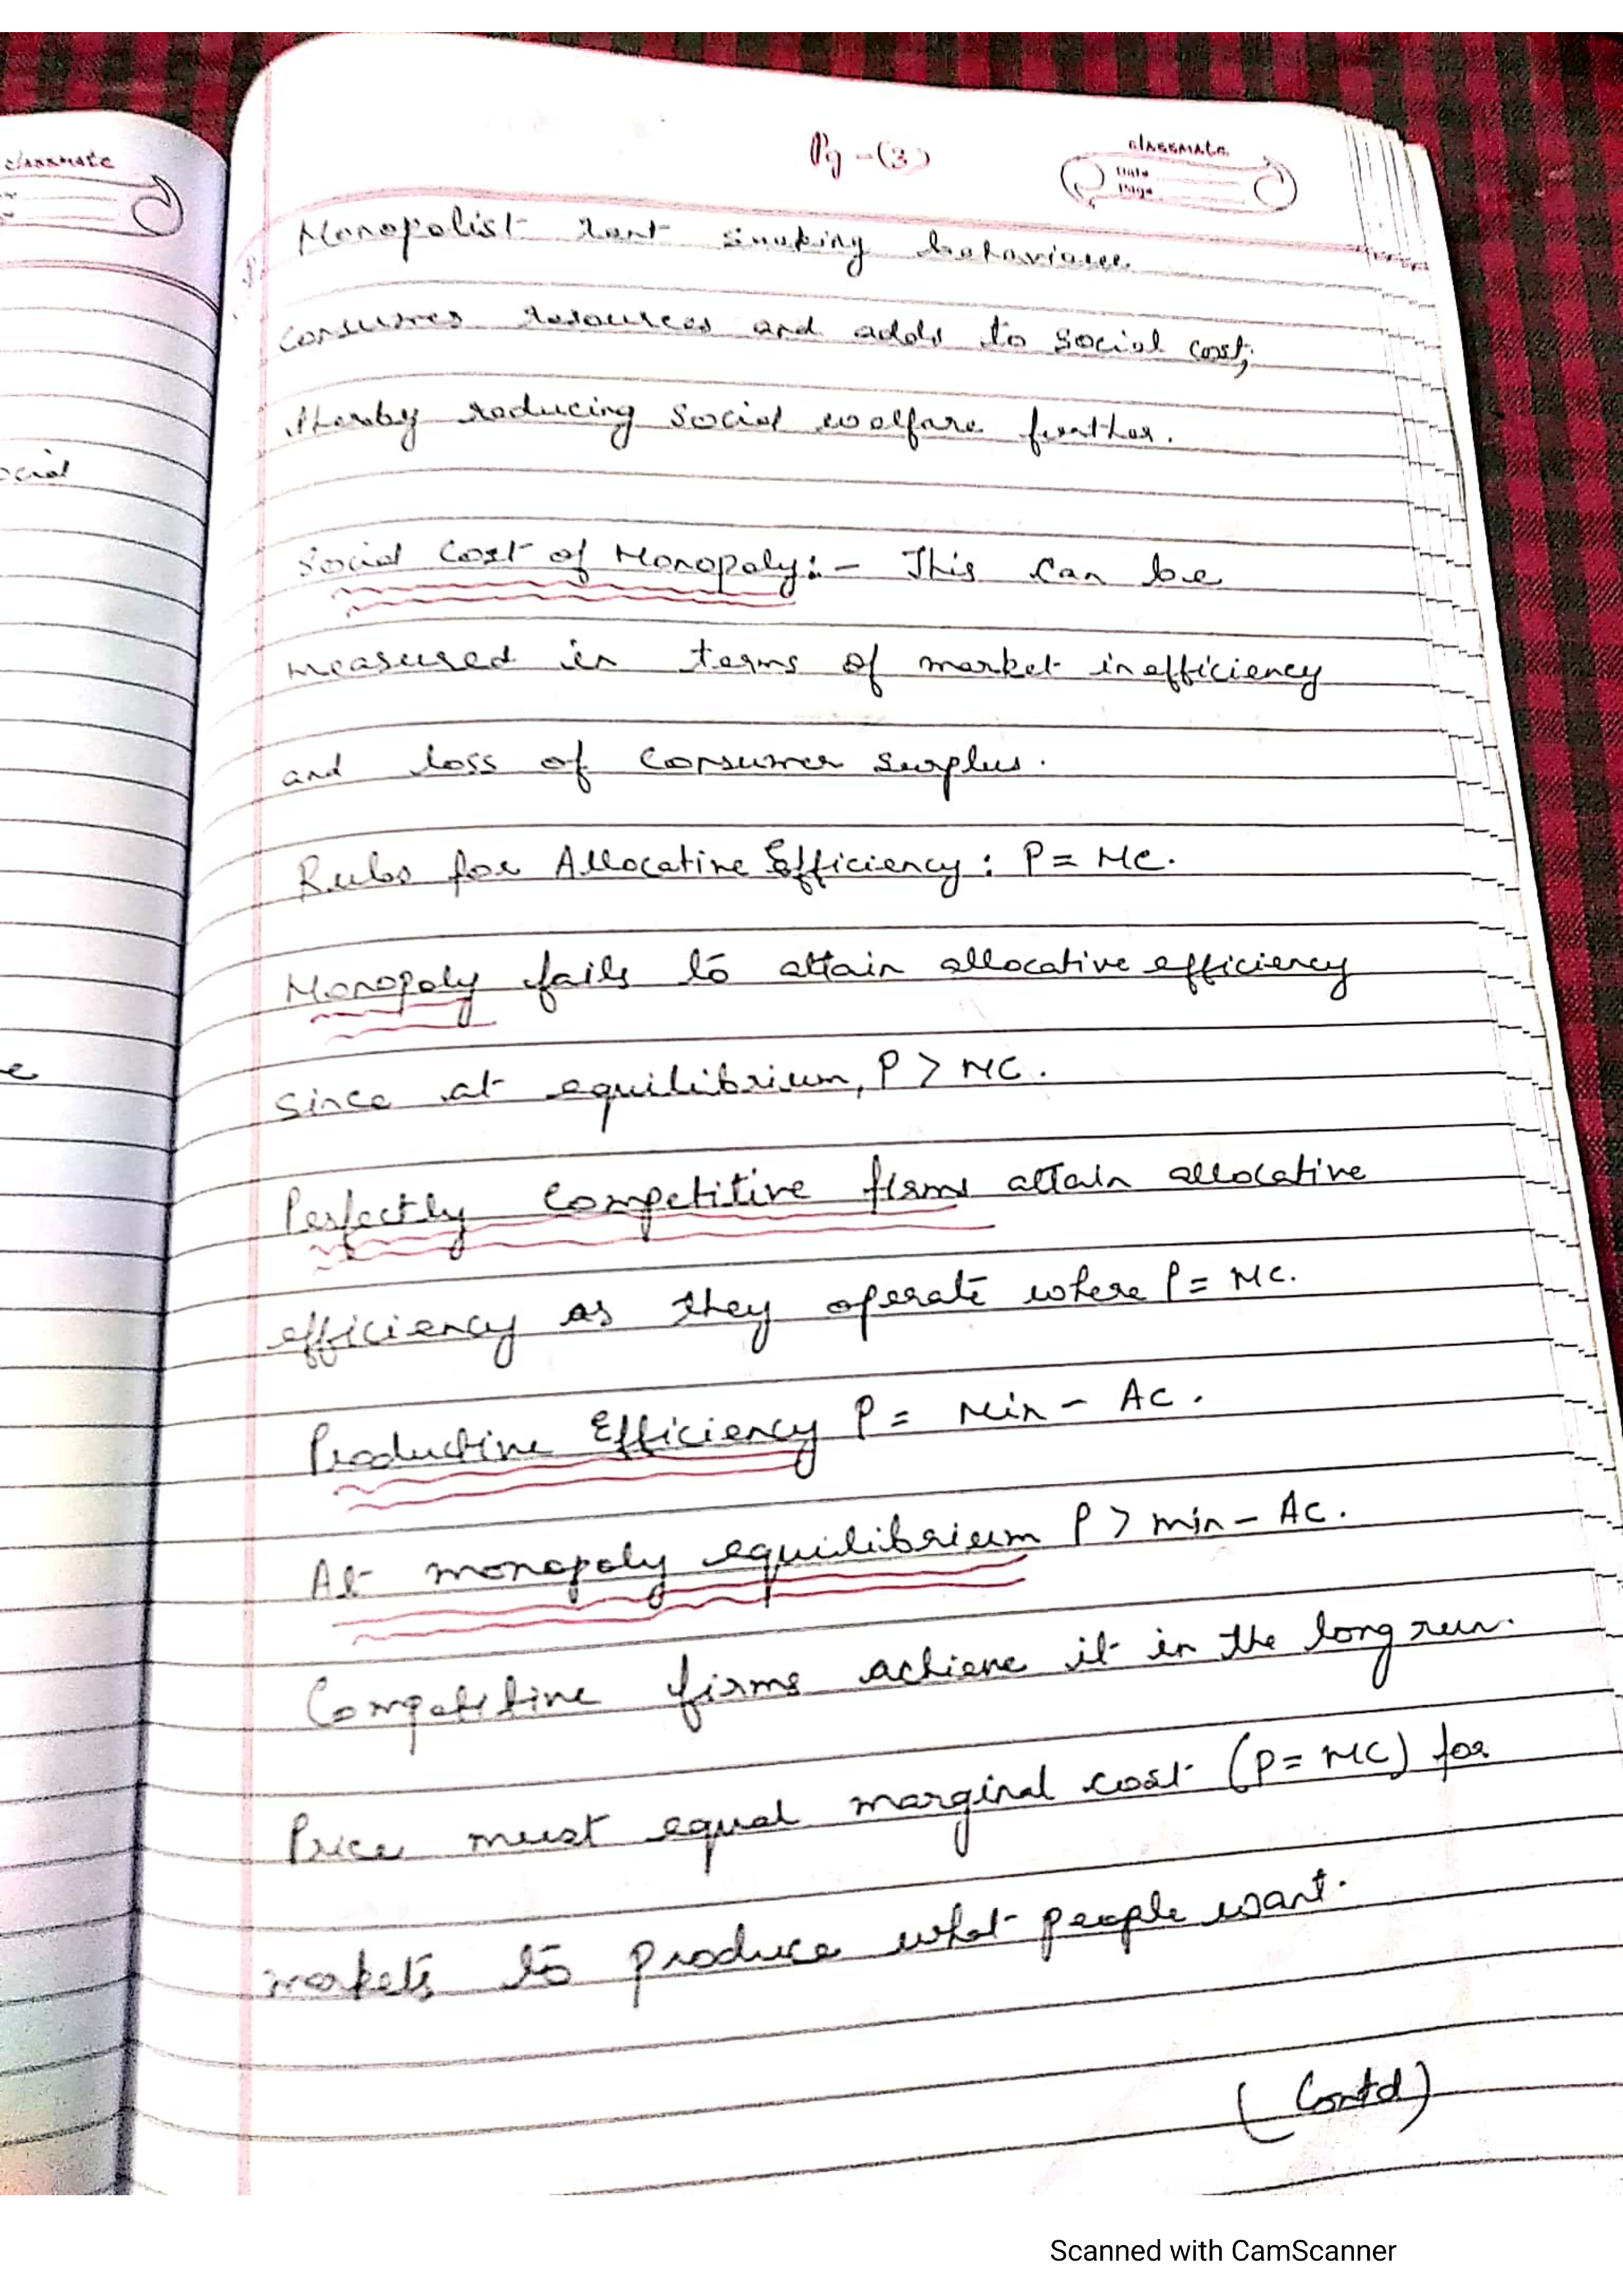 classmate
Pg-(3)
classmate
Date
Page
Monopolist rent seeking behaviour
consumes resources and adds to social cost,
thereby reducing social welfare further.
ocial
Social Cost of Monopoly:- This can be
measured in terms of market inefficiency
and loss of consumer surplus.
Rules for Allocative Efficiency: P = MC.
Monopoly fails to attain allocative efficiency
e
since at equilibrium, P > MC.
Perfectly Competitive firms attain allocative
efficiency as they operate where P = MC.
Productive Efficiency P = Min - AC.
At monopoly equilibrium P > min - AC.
Competitive firms achieve it in the long run.
Price must equal marginal cost (P = MC) for
markets to produce what people want.
(Contd)
Scanned with CamScanner